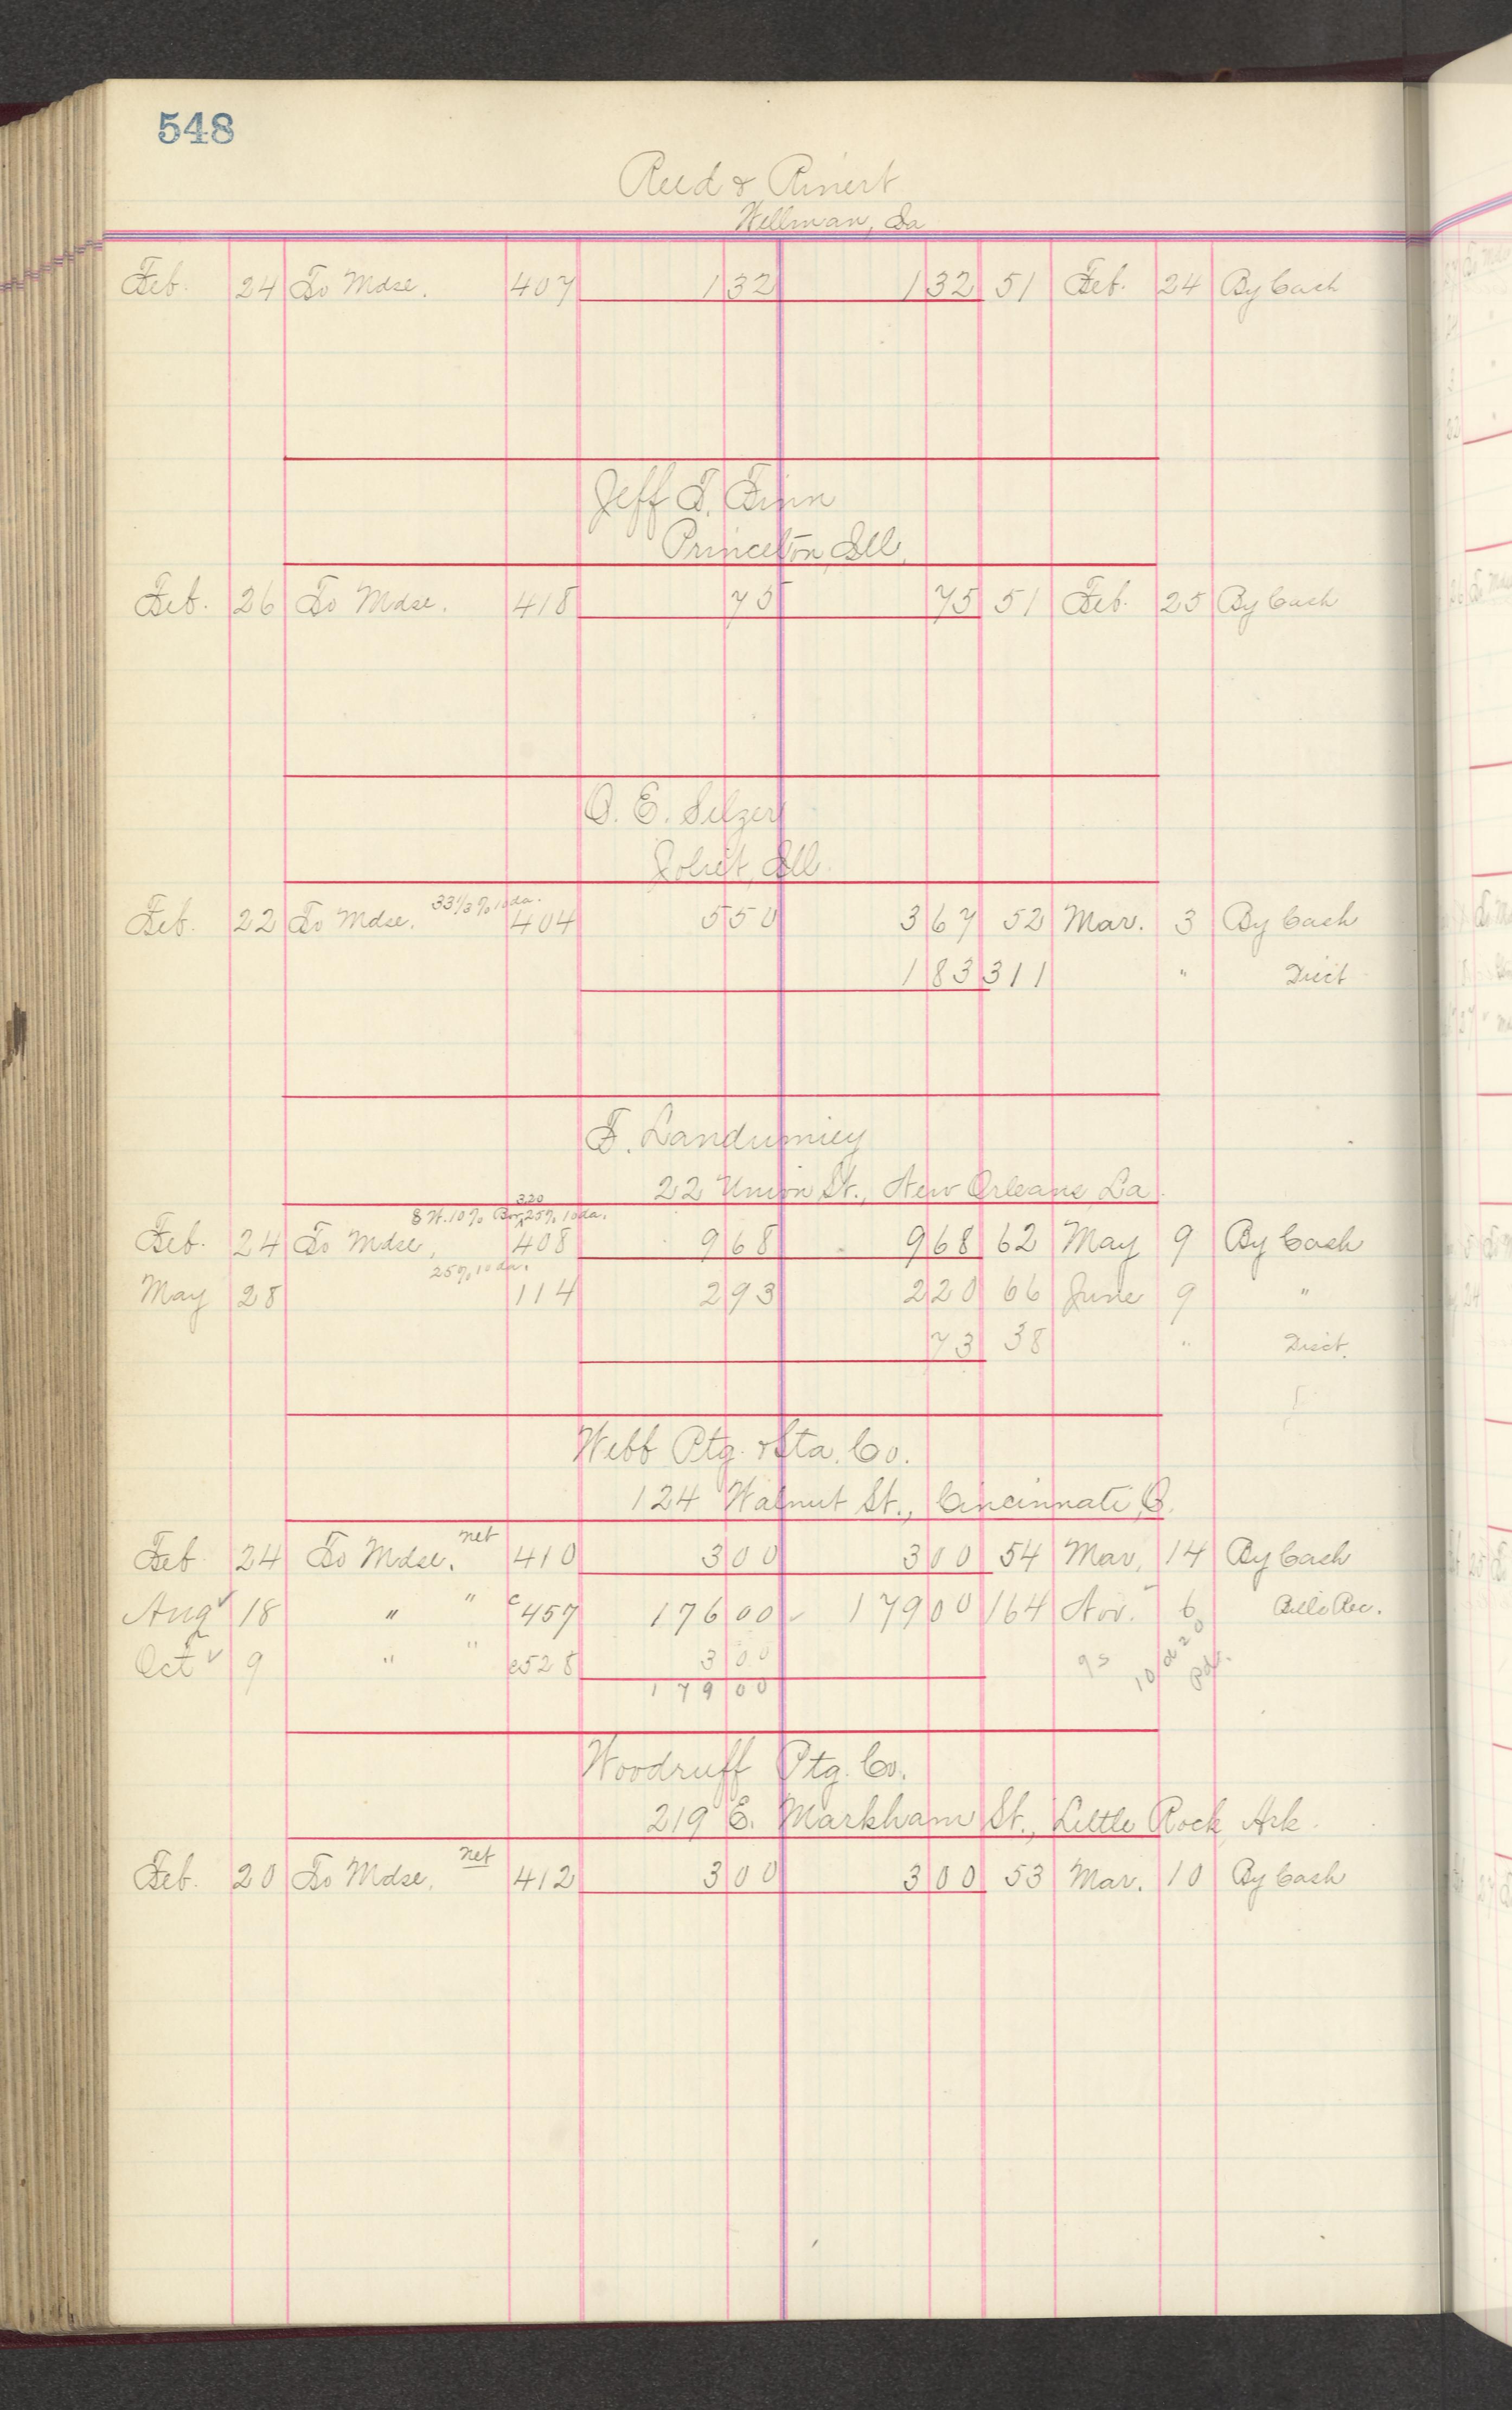 548
Reed & Rinert
Wellman, Ia
Feb. 24 To Mdse. 407 1 32 1 32 51 Feb. 24 By Cash
Jeff T. Finn
Princeton, Ill.
Feb. 26 To Mdse. 418 75 75 51 Feb. 25 By Cash
O. E. Selzer
Joliet, Ill.
33 1/3 % 10 da.
Feb. 22 To Mdse. 404 5 50 3 67 52 Mar. 3 By Cash
1 83 311 " Disct
F. Landumiey
22 Union St., New Orleans, La.
3.20
8 H. 10% Bor. 25% 10 da.
Feb. 24 To Mdse, 408 9 68 9 68 62 May 9 By Cash
25% 10 da.
May 28 114 2 93 2 20 66 June 9 "
73 38 " Disct.
Webb Ptg. & Sta. Co.
124 Walnut St., Cincinnati, O.
Feb 24 To Mdse. net 410 3 00 3 00 54 Mar. 14 By Cash
Aug ✓ 18 " " c457 176 00 179 00 164 Nov. 6 Bills Rec.
Oct ✓ 9 " " c528 3 00
179 00
Woodruff Ptg. Co.
219 E. Markham St., Little Rock, Ark.
Feb. 20 To Mdse. net 412 3 00 3 00 53 Mar. 10 By Cash